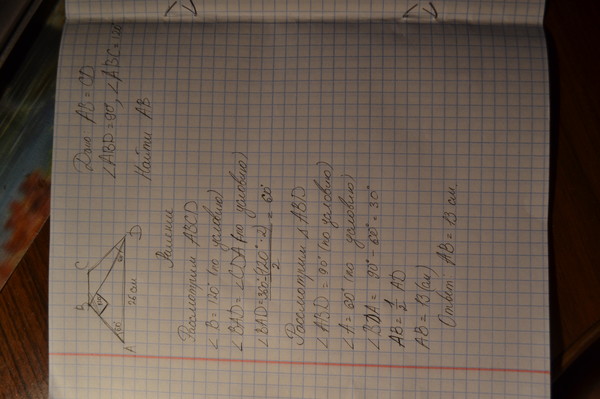 Дано AB = CD
∠ABD = 90°, ∠ABC = 120°
Найти AB
B
C
90°
60°
A
D
26 см
Решение
Рассмотрим ABCD
∠B = 120° (по условию)
∠BAD = ∠CDA (по условию)
∠BAD = 360° - (120° · 2) / 2 = 60°
Рассмотрим △ ABD
∠ABD = 90° (по условию)
∠A = 60° (по условию)
∠BDA = 90° - 60° = 30°
AB = 1/2 AD
AB = 13 (см)
Ответ: AB = 13 см